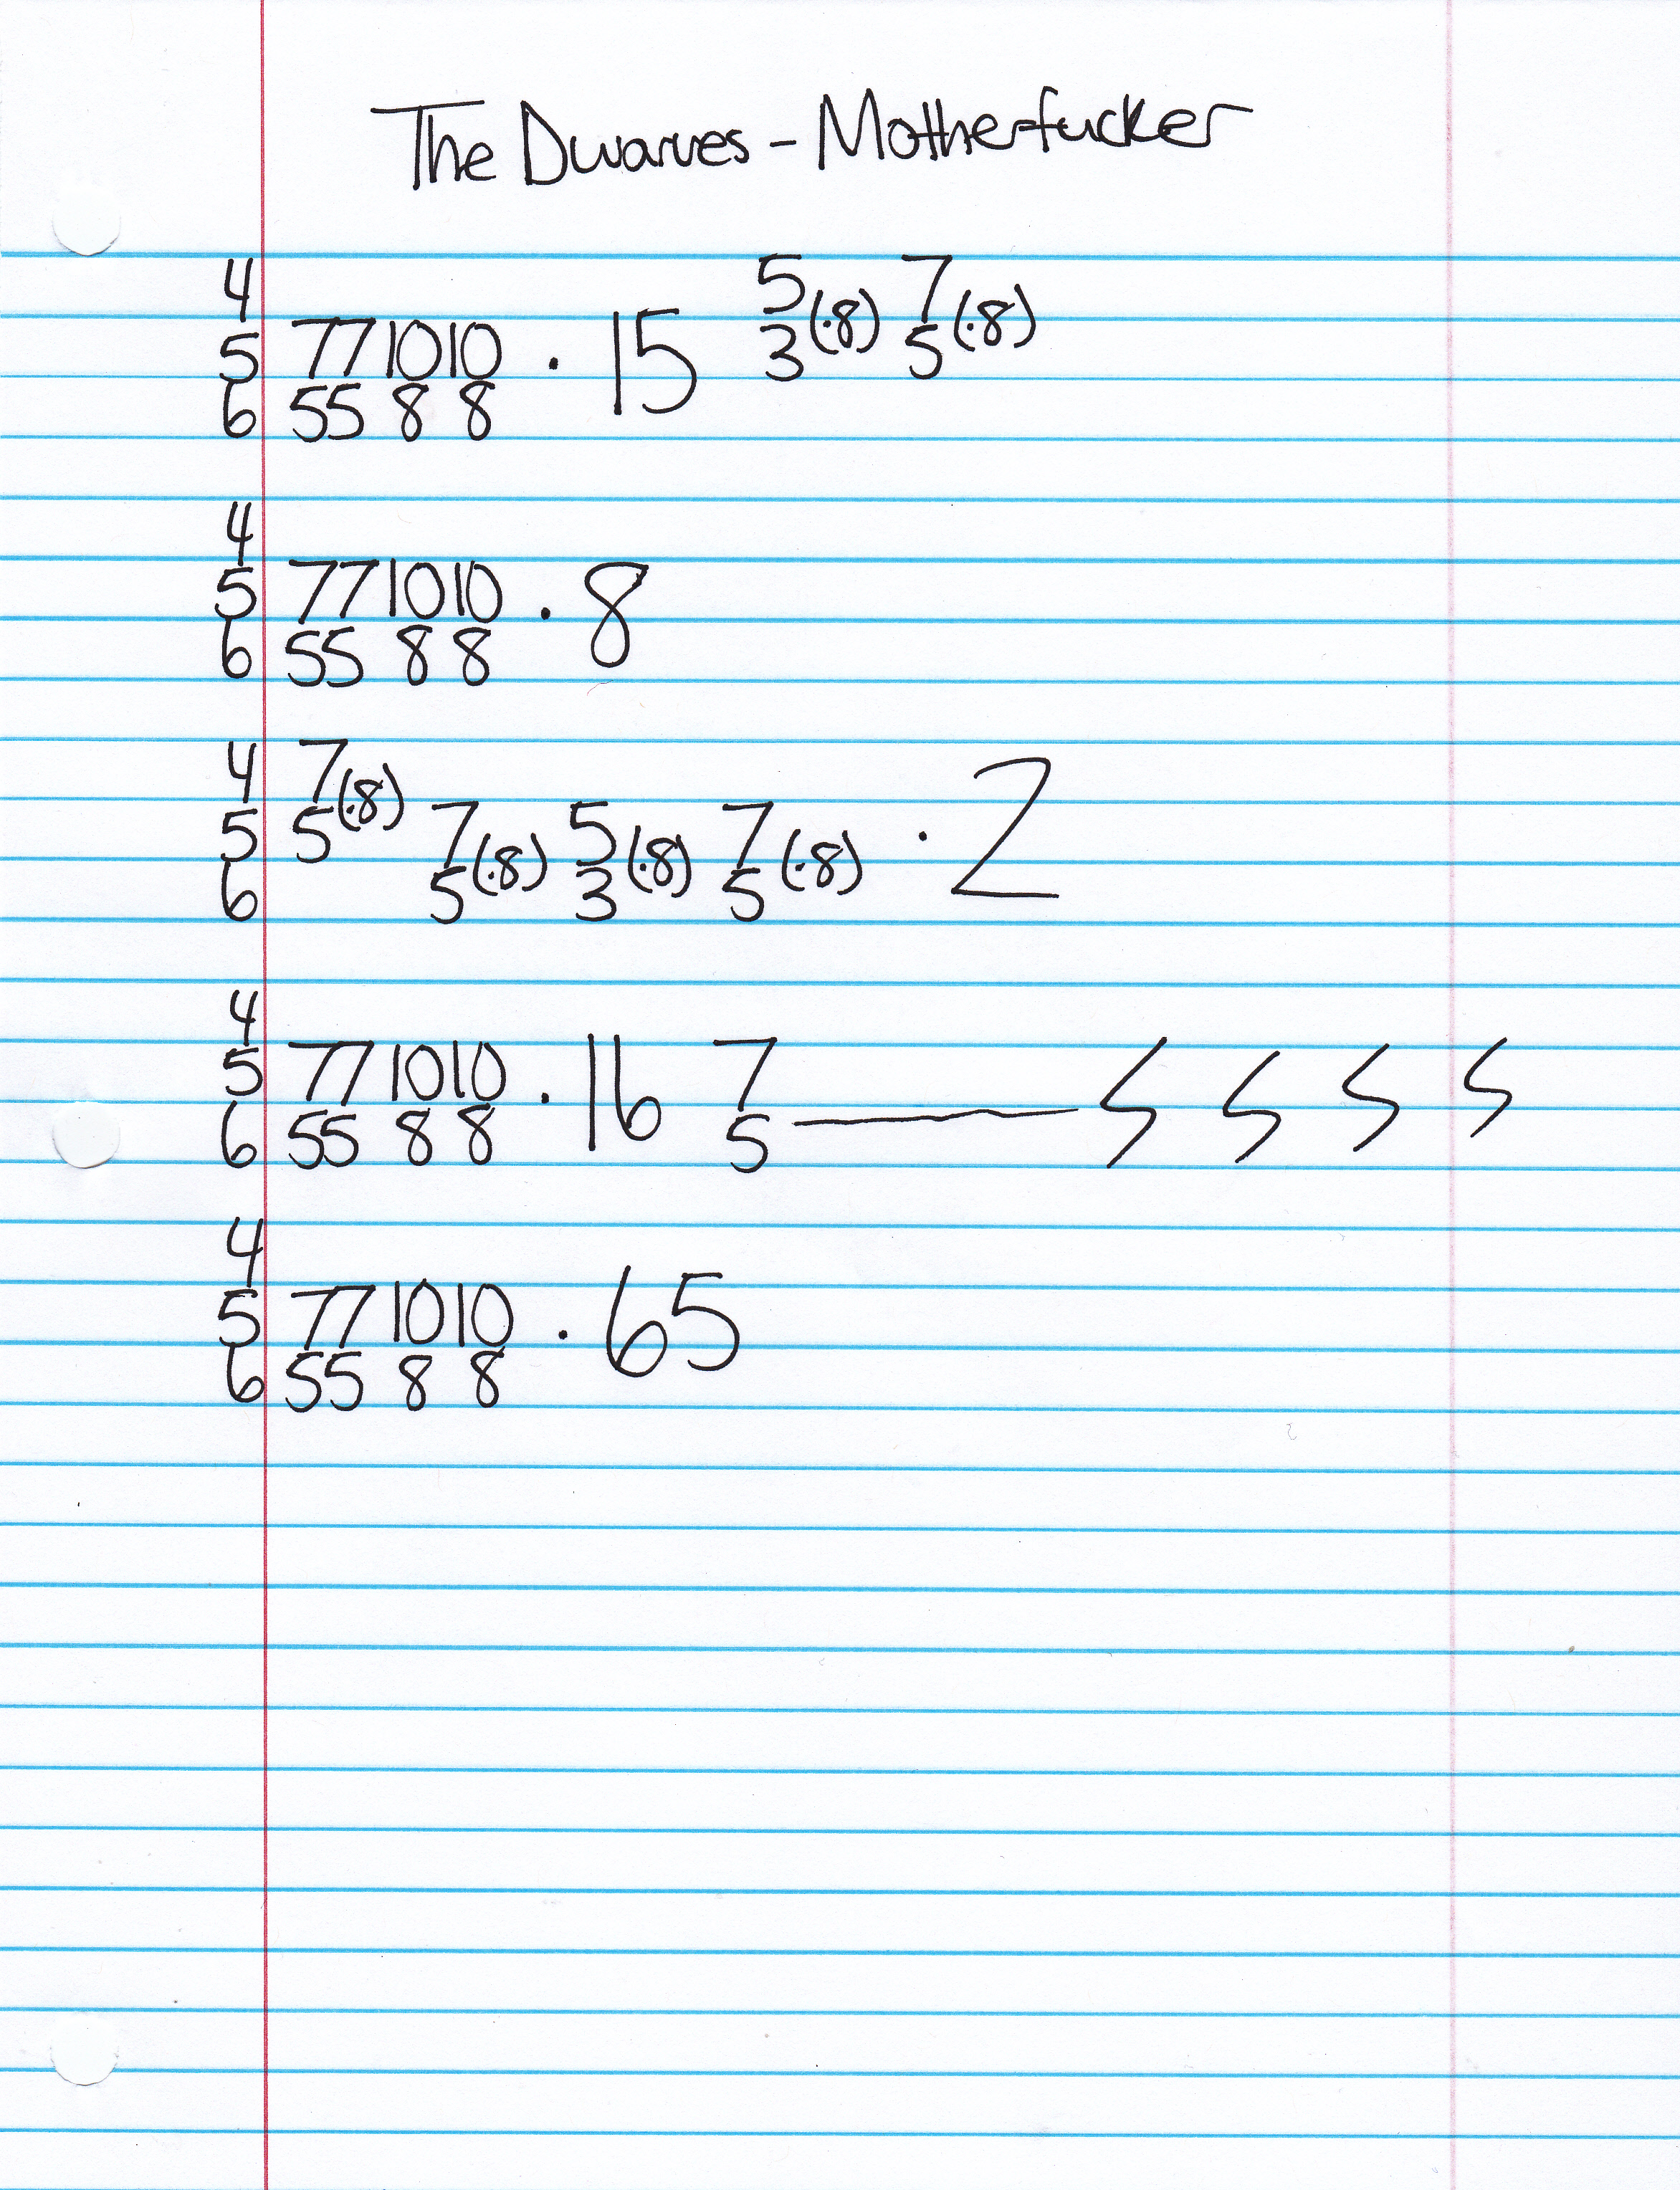 The Dwarves - Motherfucker
4 5 (.8) 7 (.8)
5 7 7 10 10 . 15 3 5
6 5 5 8 8
4
5 7 7 10 10 . 8
6 5 5 8 8
4 7 (.8)
5 5 7 (.8) 5 (.8) 7 (.8) . 2
6 5 3 5
4
5 7 7 10 10 . 16 7
6 5 5 8 8 5
4
5 7 7 10 10 . 65
6 5 5 8 8